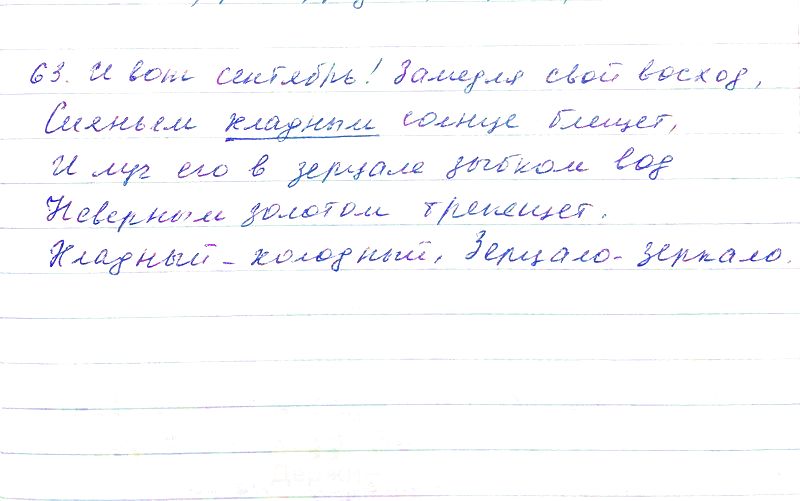 63. И вот сентябрь! Замедля свой восход,
Сияньем хладным солнце блещет,
И луч его в зерцале зыбком вод
Неверным золотом трепещет.
Хладный - холодный, Зерцало - зеркало.